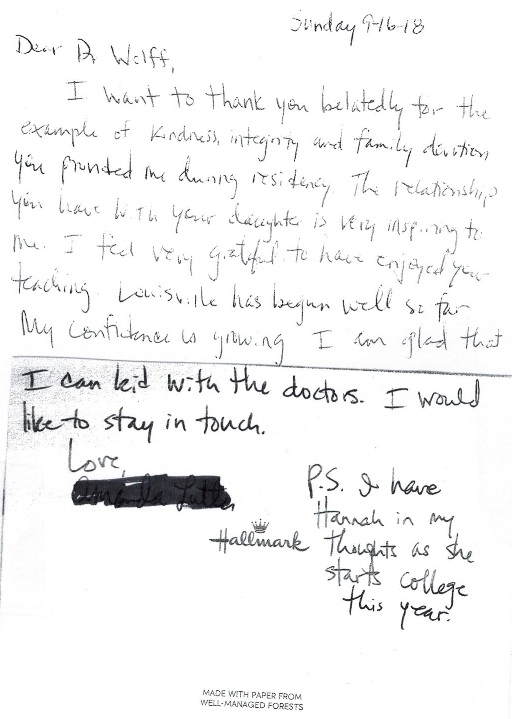 Sunday 9-16-18
Dear Dr Wolff,
I want to thank you belatedly for the
example of kindness, integrity and family devotion
you provided me during residency. The relationship
you have with your daughter is very inspiring to
me. I feel very grateful to have enjoyed your
teaching. Louisville has begun well so far
My confidence is growing I am glad that
I can kid with the doctors. I would
like to stay in touch.
Love,
P.S. I have
Hannah in my
thoughts as she
starts college
this year.
Hallmark
MADE WITH PAPER FROM
WELL-MANAGED FORESTS